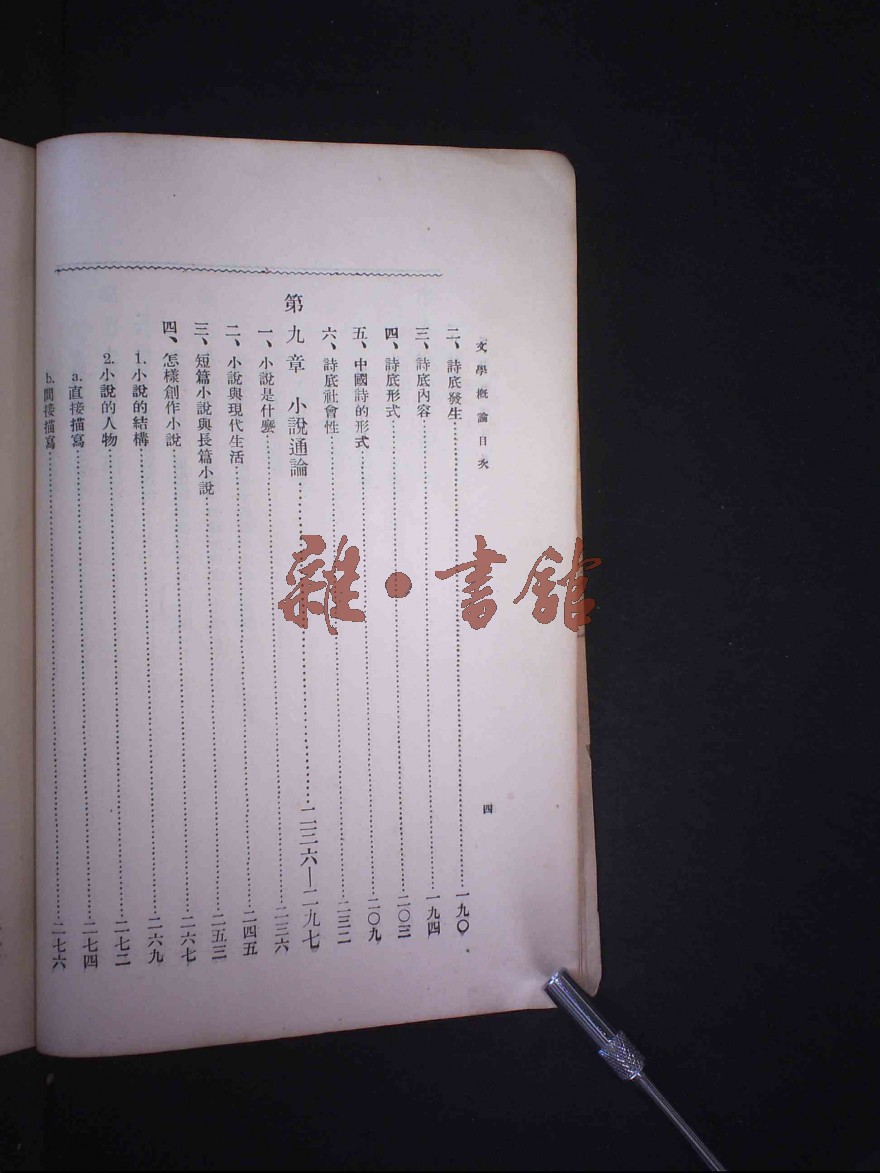 文學概論目次
四
二、詩底發生……一九〇
三、詩底內容……一九四
四、詩底形式……二〇三
五、中國詩的形式……二〇九
六、詩底社會性……二三二
第九章 小說通論……二三六—二九七
一、小說是什麼……二三六
二、小說與現代生活……二四五
三、短篇小說與長篇小說……二五三
四、怎樣創作小說……二六七
1.小說的結構……二六九
2.小說的人物……二七二
a.直接描寫……二七四
b.間接描寫……二七六
雜·書館